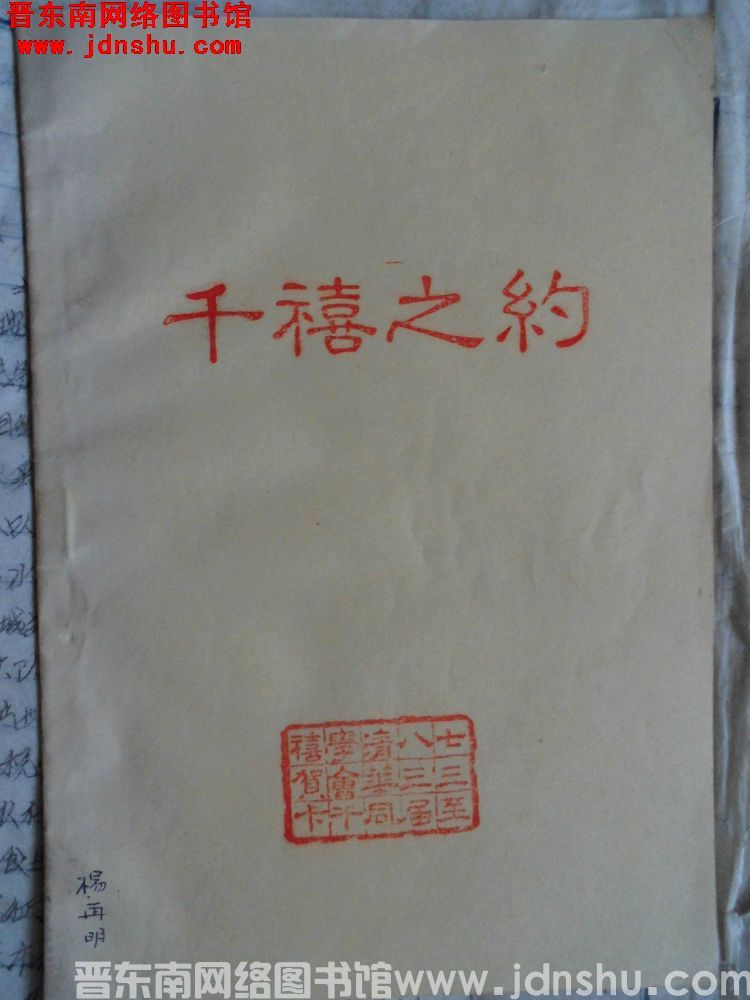 晋东南网络图书馆
www.jdnshu.com
千禧之約
七三至
八三届
清華同
學會千
禧賀卡
楊再明
晋东南网络图书馆www.jdnshu.com